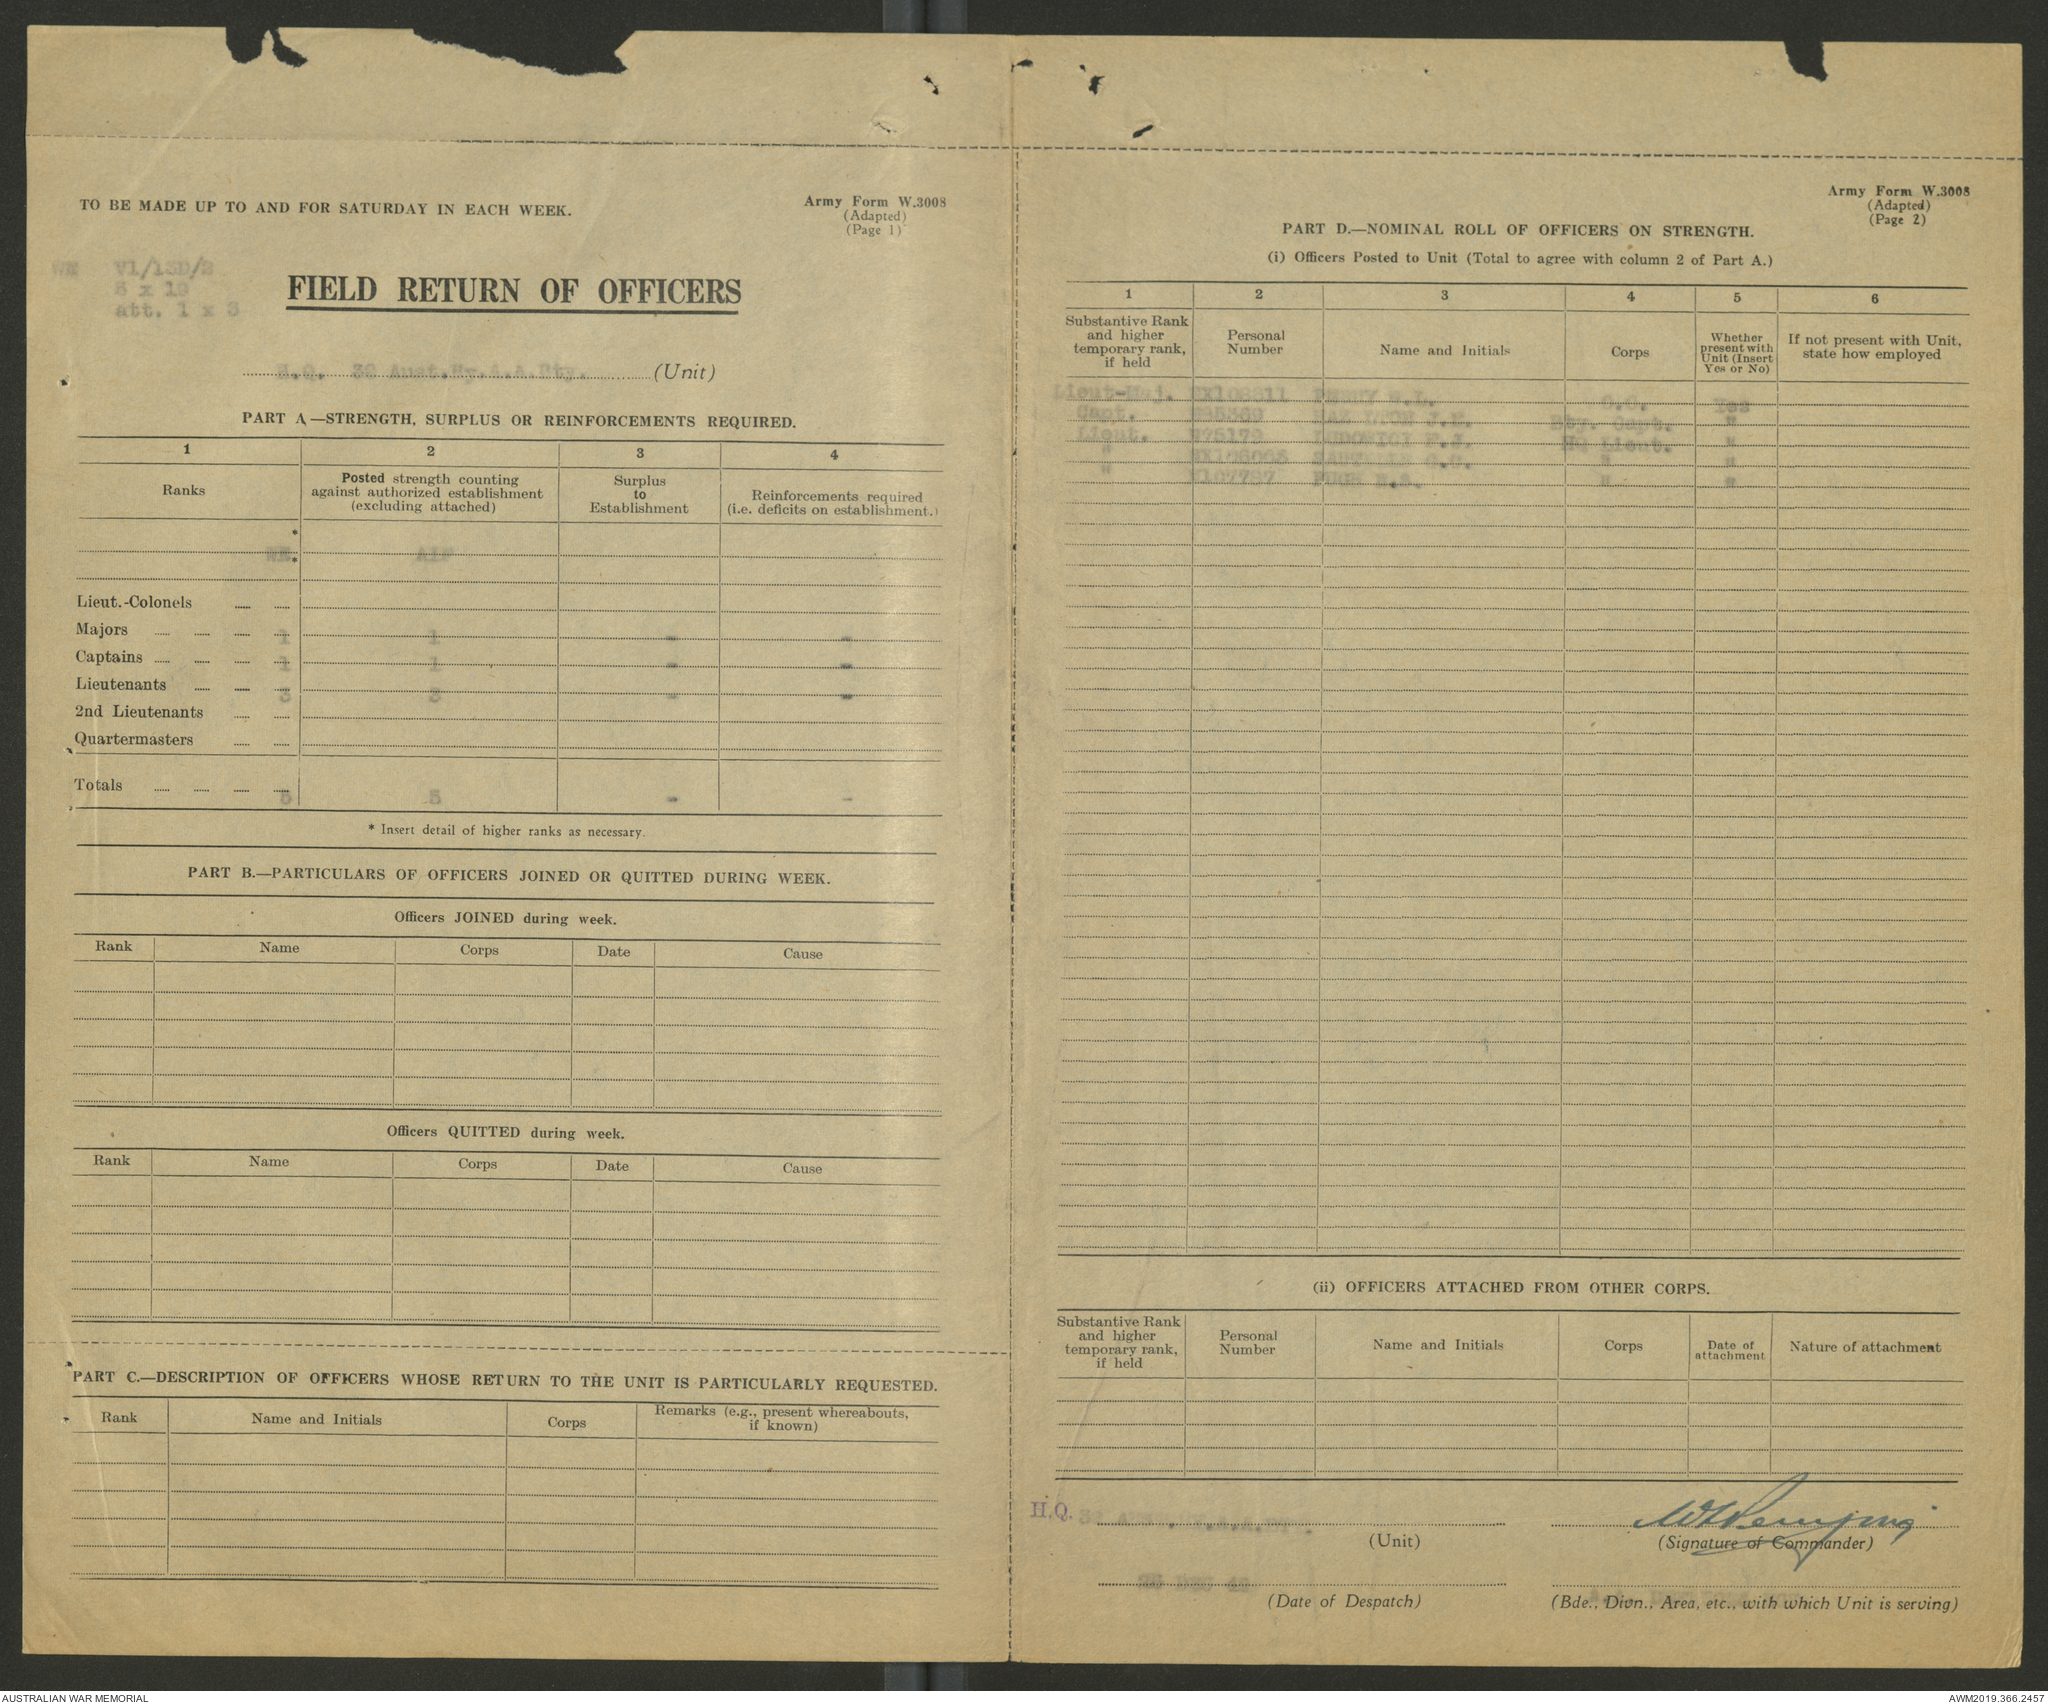 TO BE MADE UP TO AND FOR SATURDAY IN EACH WEEK.
Army Form W.3008
(Adapted)
(Page 1)
WE V1/1SD/2
5 x 19
att. 1 x 3
FIELD RETURN OF OFFICERS
H.Q. 32 Aust.Hy.A.A.Bty. (Unit)
PART A.—STRENGTH, SURPLUS OR REINFORCEMENTS REQUIRED.
1 2 3 4
Ranks
Posted strength counting against authorized establishment (excluding attached)
Surplus to Establishment
Reinforcements required (i.e. deficits on establishment.)
*
WE.* AIF
Lieut.-Colonels
Majors 1 1 - -
Captains 1 1 - -
Lieutenants 3 3 - -
2nd Lieutenants
Quartermasters
Totals 5 5 - -
* Insert detail of higher ranks as necessary.
PART B.—PARTICULARS OF OFFICERS JOINED OR QUITTED DURING WEEK.
Officers JOINED during week.
Rank Name Corps Date Cause
Officers QUITTED during week.
Rank Name Corps Date Cause
PART C.—DESCRIPTION OF OFFICERS WHOSE RETURN TO THE UNIT IS PARTICULARLY REQUESTED.
Rank Name and Initials Corps Remarks (e.g., present whereabouts, if known)
Army Form W.3008
(Adapted)
(Page 2)
PART D.—NOMINAL ROLL OF OFFICERS ON STRENGTH.
(i) Officers Posted to Unit (Total to agree with column 2 of Part A.)
1 2 3 4 5 6
Substantive Rank and higher temporary rank, if held
Personal Number
Name and Initials
Corps
Whether present with Unit (Insert Yes or No)
If not present with Unit, state how employed
Lieut-Maj. W.L. O.C. Yes
Capt. J.H. Bty. Capt. "
Lieut. F.J. HQ Lieut. "
" G.C. " "
" PUGH " "
(ii) OFFICERS ATTACHED FROM OTHER CORPS.
Substantive Rank and higher temporary rank, if held
Personal Number
Name and Initials
Corps
Date of attachment
Nature of attachment
H.Q. 32
(Unit)
(Signature of Commander)
26 DEC 42
(Date of Despatch)
(Bde., Divn., Area, etc., with which Unit is serving)
AUSTRALIAN WAR MEMORIAL
AWM2019.366.2457